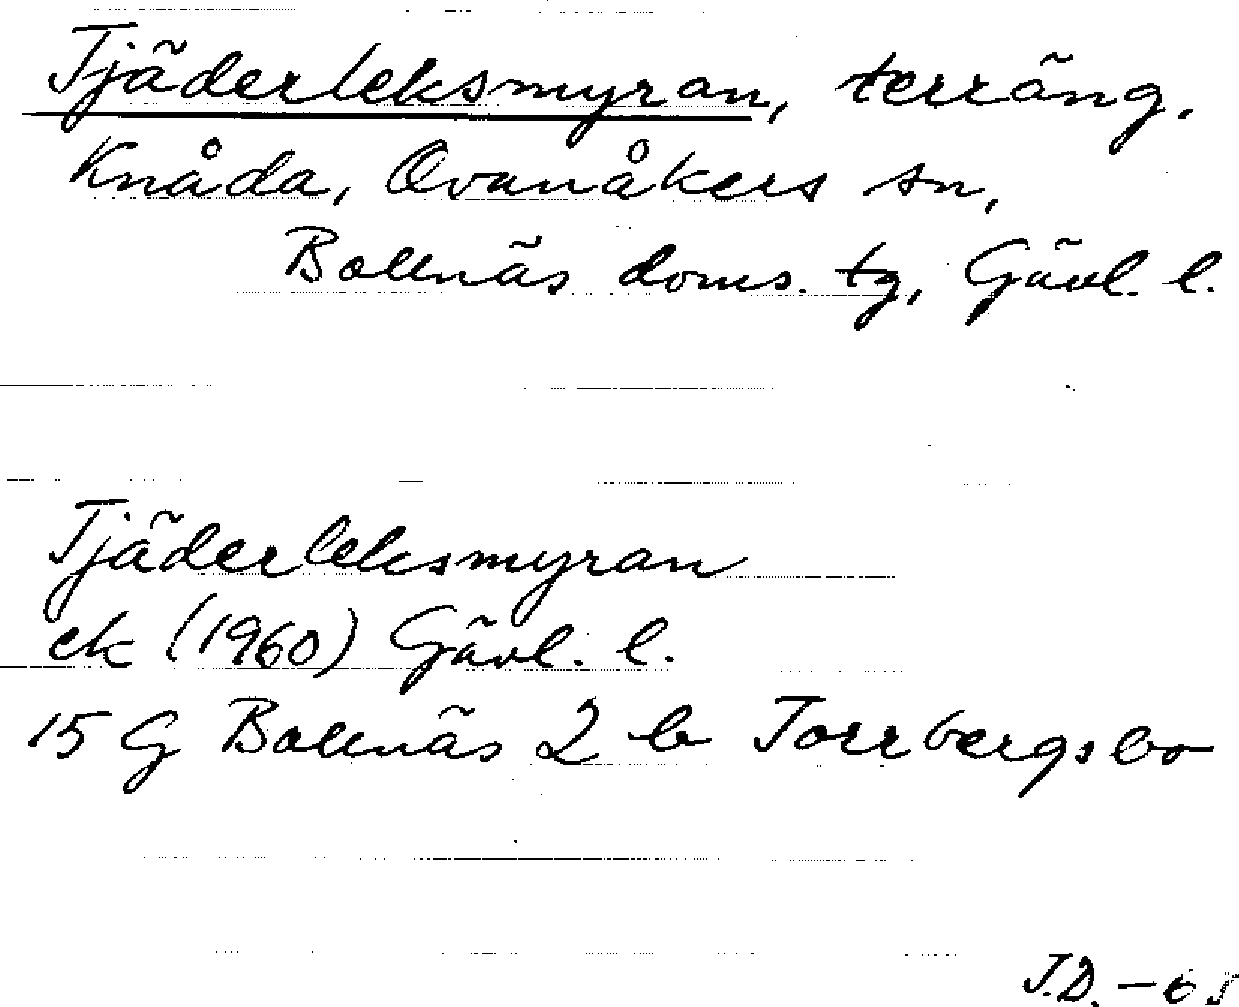 Tjäderleksmyran, terräng.
Knåda, Ovanåkers sn,
Bollnäs doms. tg, Gävl. l.
Tjäderleksmyran
ek (1960) Gävl. l.
15 G Bollnäs 2 b Torrbergsbo
J.D. - 65